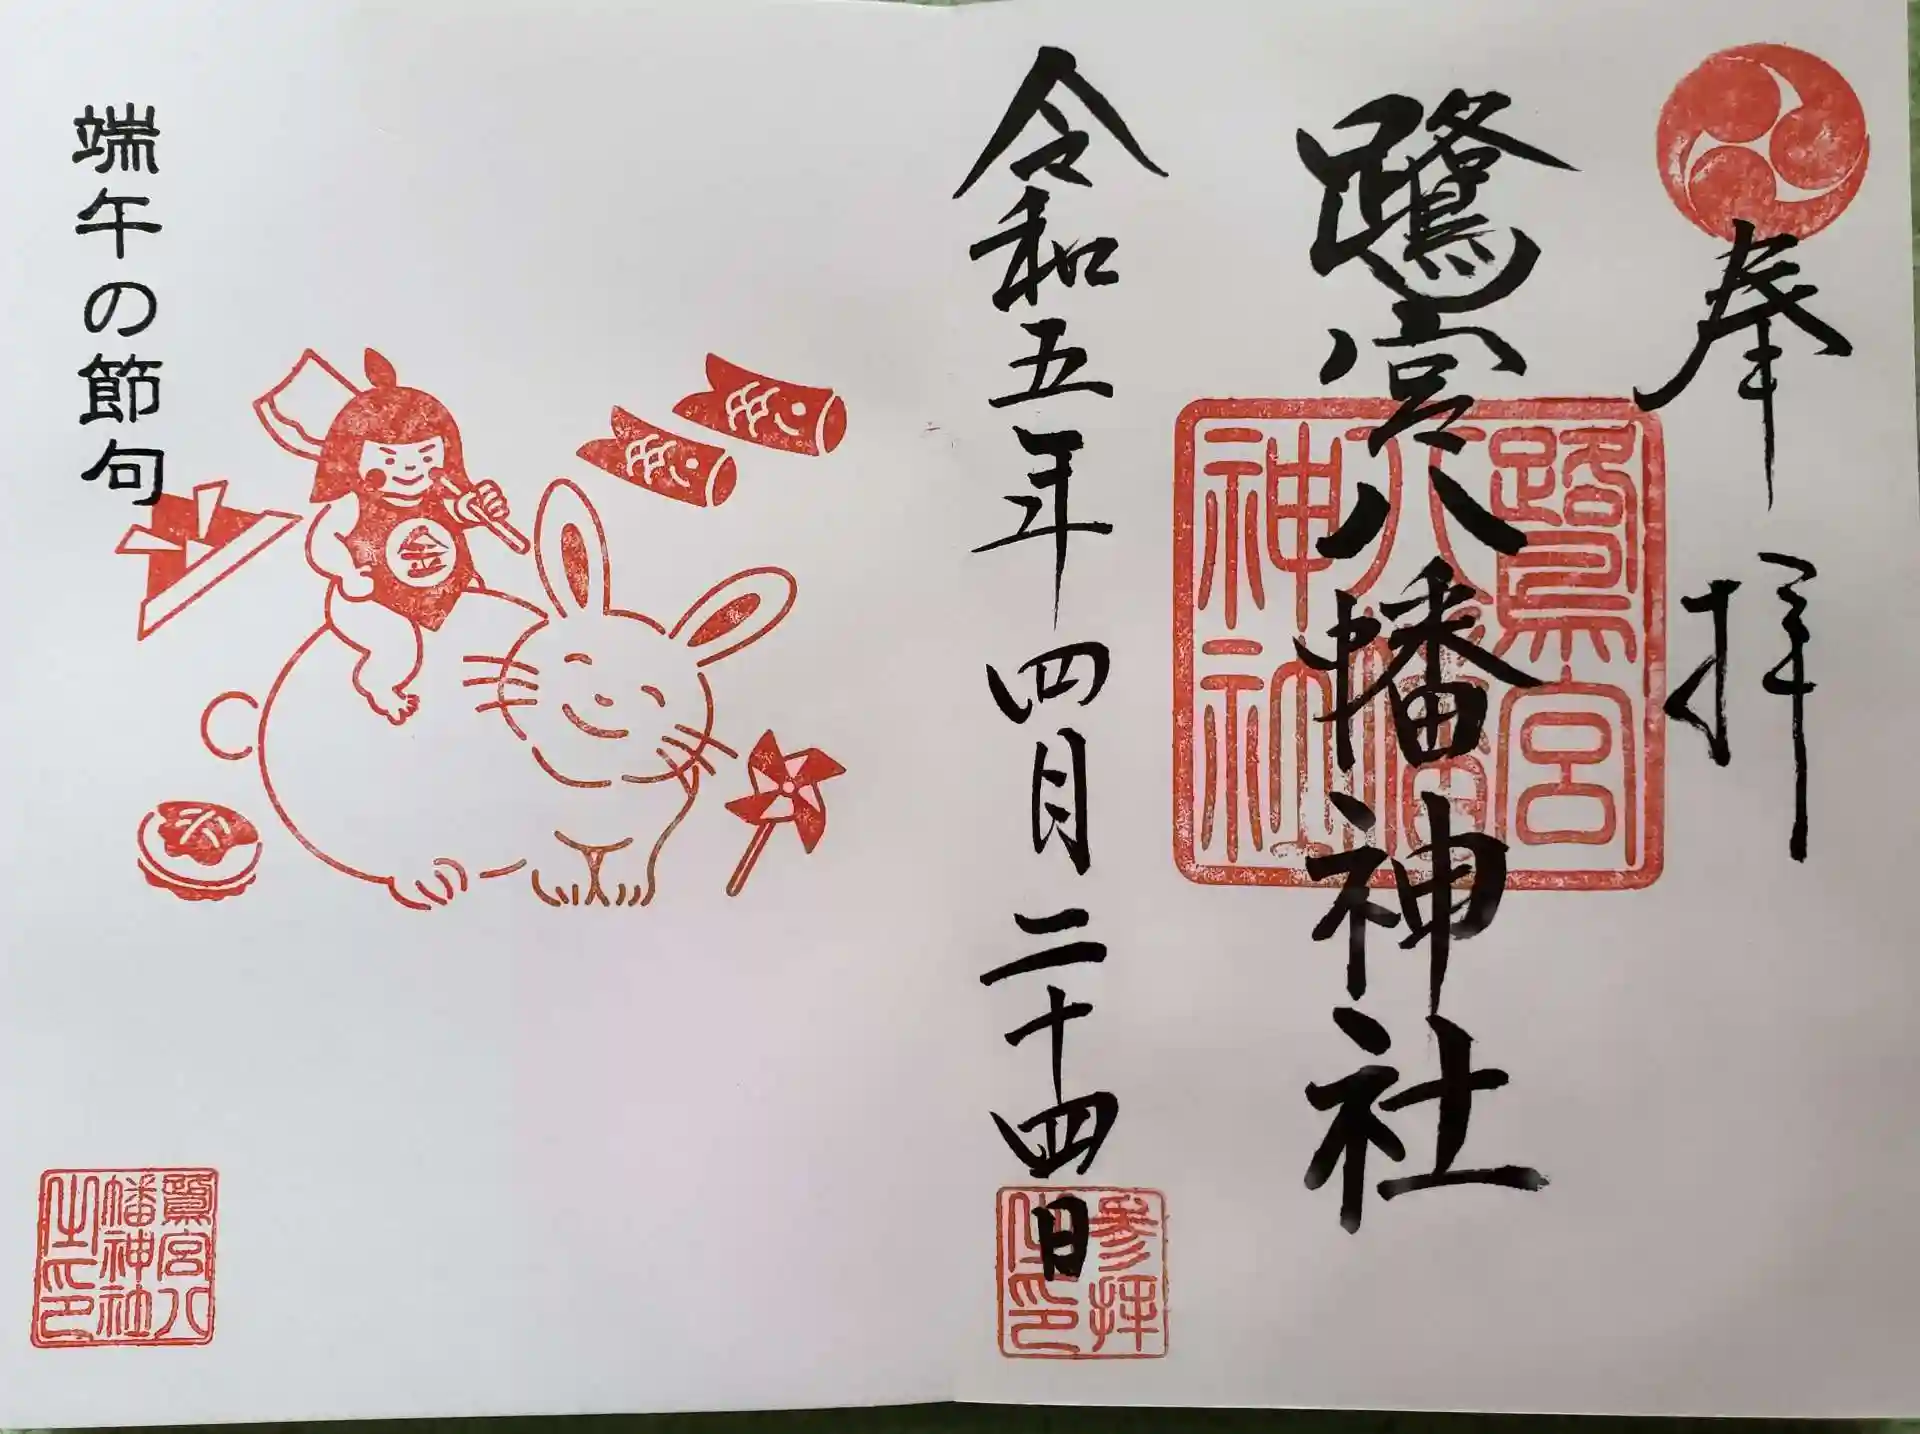 奉拝
鷺宮八幡神社
鷺宮
八幡
神社
令和五年四月二十四日
参拝
之印
端午の節句
金
鷺宮八
幡神社
之印